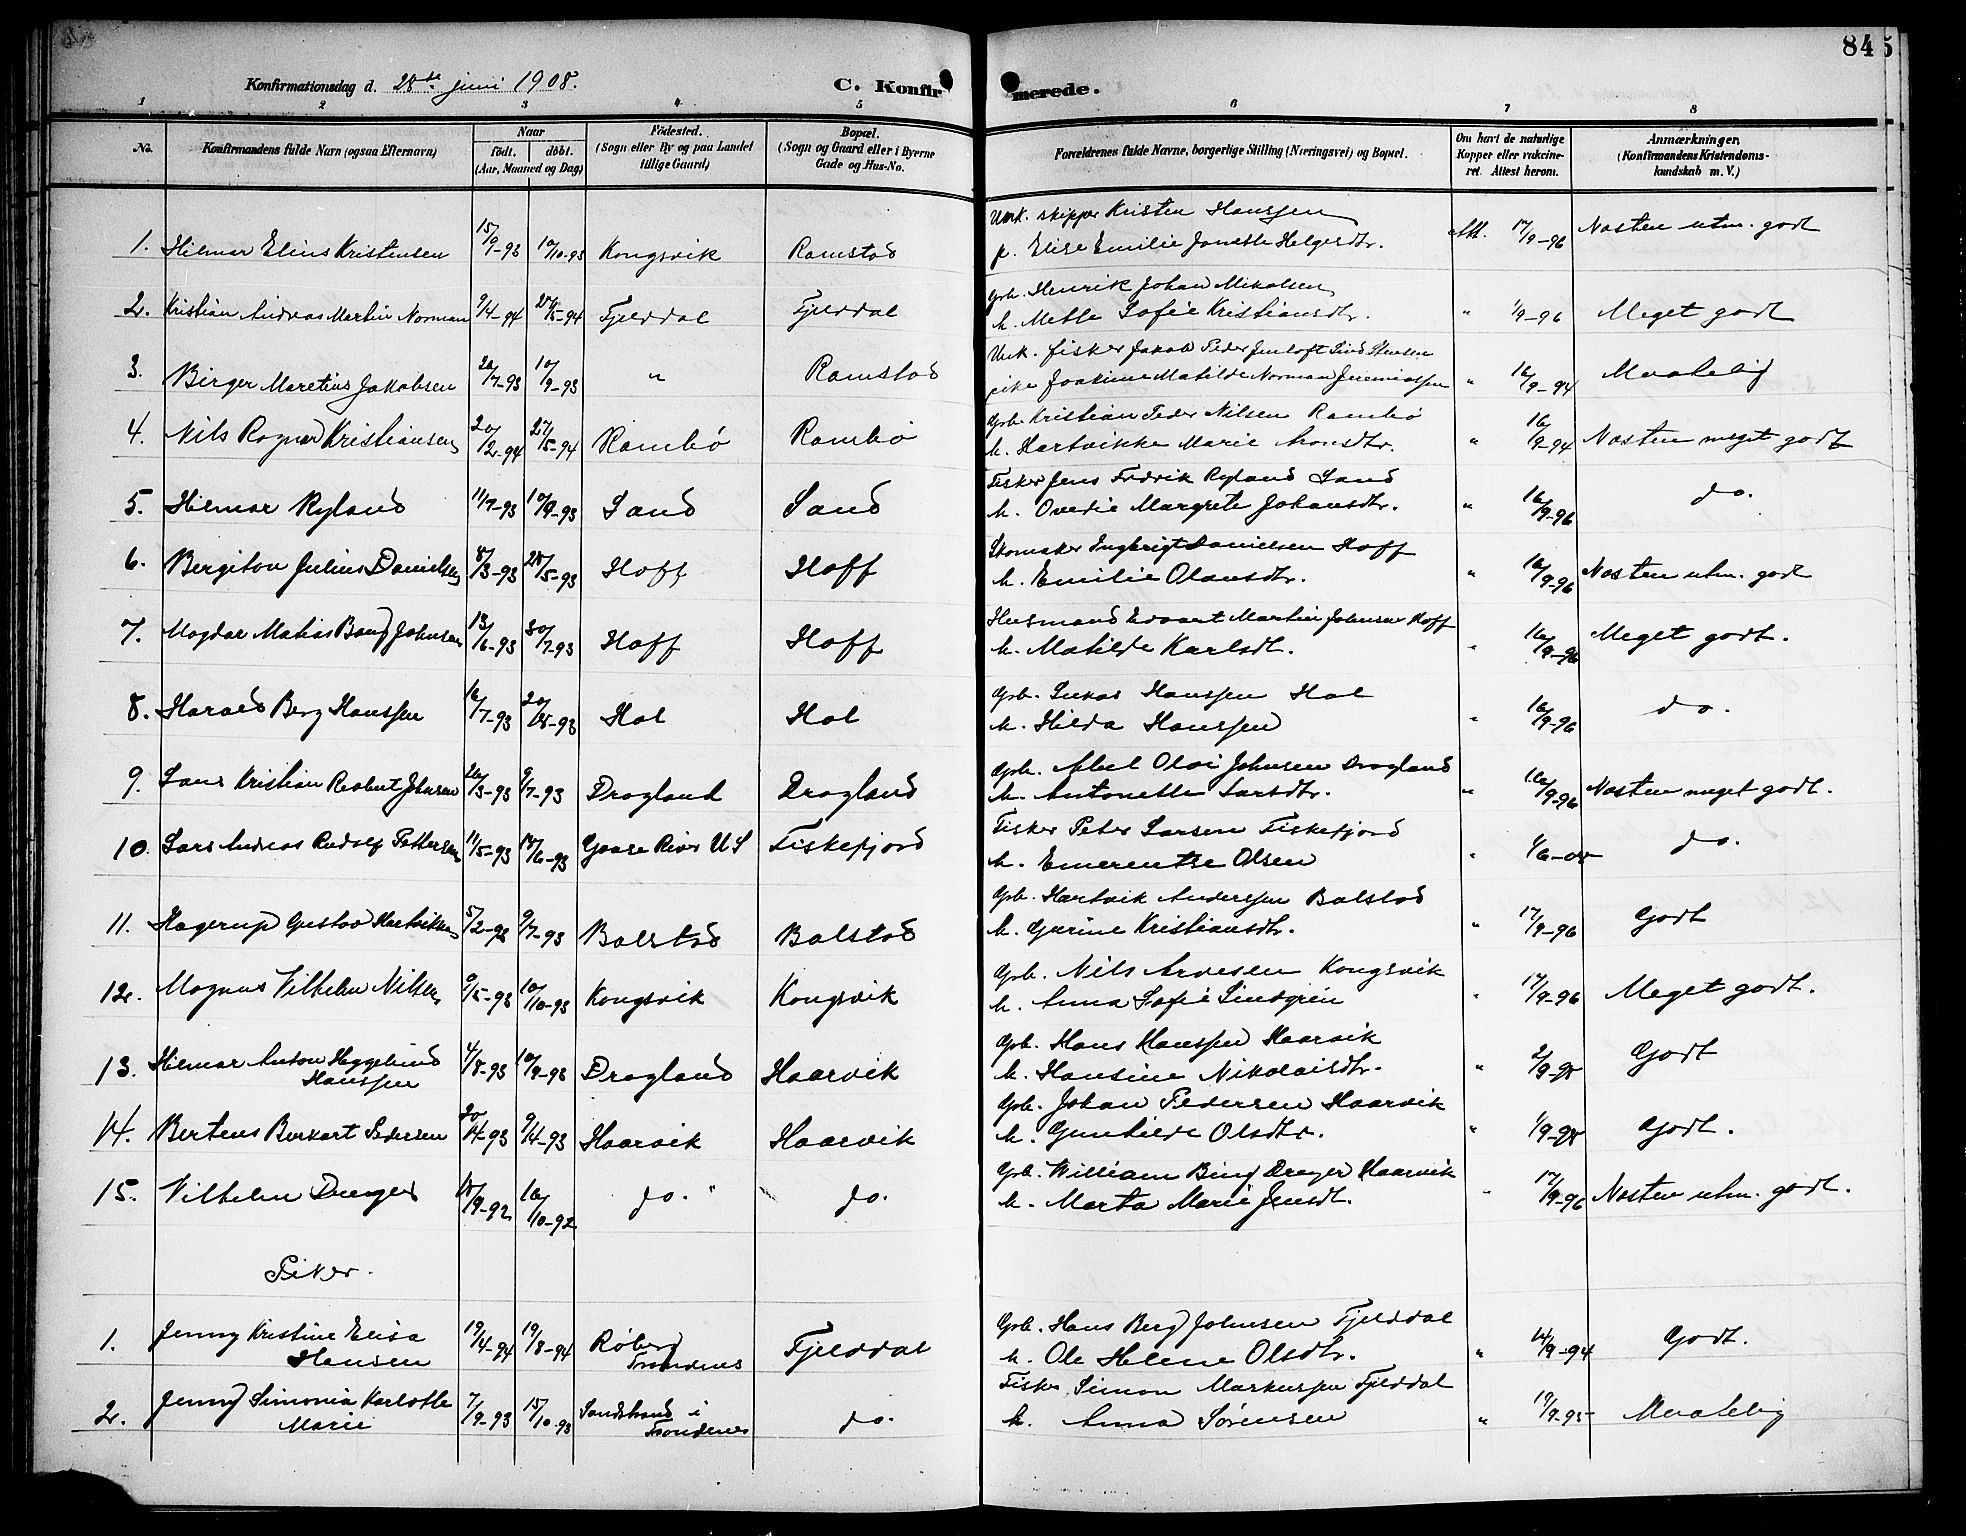 845
Konfirmationsdag d. 28de juni 1908.
C. Konfirmerede.
1 2 3 4 5 6 7 8
No.
Konfirmandens fulde Navn (ogsaa Efternavn)
Naar
födt. döbt.
(Aar, Maaned og Dag)
Födested.
(Sogn eller By og paa Landet
tillige Gaard)
Bopæl.
(Sogn og Gaard eller i Byerne
Gade og Hus-No.
Forældrenes fulde Navne, borgerlige Stilling (Næringsvei) og Bopæl.
Om havt de naturlige
Kopper eller vakcine-
ret. Attest herom.
Anmærkninger.
(Konfirmandens Kristendoms-
kundskab m. V.)
Umk. skipper Kristen Hanssen
1. Hilmar Elius Kristensen 15/9-93 10/10-93 Kongsvik Ramstad p. Elise Emilie Jonette Helgesdtr. Att. 17/9-96 Næsten utm. godt
Grb. Henrik Johan Mikalsen
2. Kristian Andreas Martin Norman 9/4-94 20/5-94 Fjelddal Fjelddal h. Mette Sofie Kristiansdtr. " 1/9-96 Meget godt
Umk. fisker Jakob Peder Jenloft Lind Steensen
3. Birger Maretius Jakobsen 20/7-93 10/9-93 " Ramstad pike Joakime Matilde Norman Jeremiassen " 16/9-94 Maatelig
Grb. Kristian Peder Nilsen Rambø
4. Nils Ragnar Kristiansen 20/2-94 27/5-94 Rambø Rambø h. Hartvikke Marie Aronsdtr. " 16/9-94 Næsten meget godt
Fisker Jens Fredrik Ryland Sand
5. Hilmar Ryland 11/7-93 10/9-93 Sand Sand h. Ovedie Margrete Johansdtr. " 16/9-96 do.
Skomaker Ingbrigt Danielsen Hoff
6. Bergiton Julius Danielsen 8/3-93 28/5-93 Hoff Hoff h. Emilie Olausdtr. " 16/9-96 Næsten utm. godt
Husmand Edvart Martin Johnsen Hoff
7. Magdar Matias Bang Johnsen 13/6-93 30/7-93 Hoff Hoff h. Matilde Karlsdt. " 16/9-96 Meget godt.
Grb. Lukas Hanssen Hol
8. Harald Berg Hanssen 16/7-93 20/8-93 Hol Hol h. Hilda Hanssen " 16/9-96 do.
Grb. Abel Olai Johnsen Dragland
9. Lars Kristian Reabert Johnsen 26/3-93 9/7-93 Dragland Dragland h. Antonette Larsdtr. " 16/9-96 Næsten meget godt.
Fisker Peter Larsen Fiskefjord
10. Lars Andreas Rudolf Pettersen 11/5-93 18/6-93 Goose River U S Fiskefjord h. Emerentse Olsen " 1/6-08 do.
Grb. Hartvik Anderssen Balstad
11. Hagerup Gustav Hartviksen 5/2-93 9/7-93 Balstad Balstad h. Gurine Kristiansdtr. " 17/9-96 Godt
Grb. Nils Arvesen Kongsvik
12. Magnus Vilhelm Nilsen 9/5-93 10/10-93 Kongsvik Kongsvik h. Anna Sofie Lindgren " 17/9-96 Meget godt.
Grb. Hans Hanssen Haarvik
13. Hilmar Anton Heggelund
Hanssen 4/8-93 10/9-93 Dragland Haarvik h. Hansine Nikolaisdtr. " 2/9-98 Godt
Grb. Johan Pedersen Haarvik
14. Bertens Burkart Pedersen 20/4-93 9/4-93 Haarvik Haarvik h. Gunhilde Olsdtr. " 1/9-98 Godt.
Grb. William Bing Dreyer Haarvik
15. Vilhelm Dreyer 18/9-92 16/10-92 do. " do. h. Marta Marie Jensdt. " 17/9-96 Næsten utm. godt.
Piker.
Grb. Hans Berg Johnsen Fjelddal
1. Jenny Kristine Elisa
Hansen 19/4-94 19/8-94 Røberg
Trondenes Fjelddal h. Ole Helene Olsdtr. " 14/9-94 Godt.
Fisker Simon Markussen Fjelddal
2. Jenny Simonia Karlotte
Marie 7/9-93 15/10-93 Sandstrand i
Trondenes do. h. Anna Sørensen " 19/9-95 Maatelig